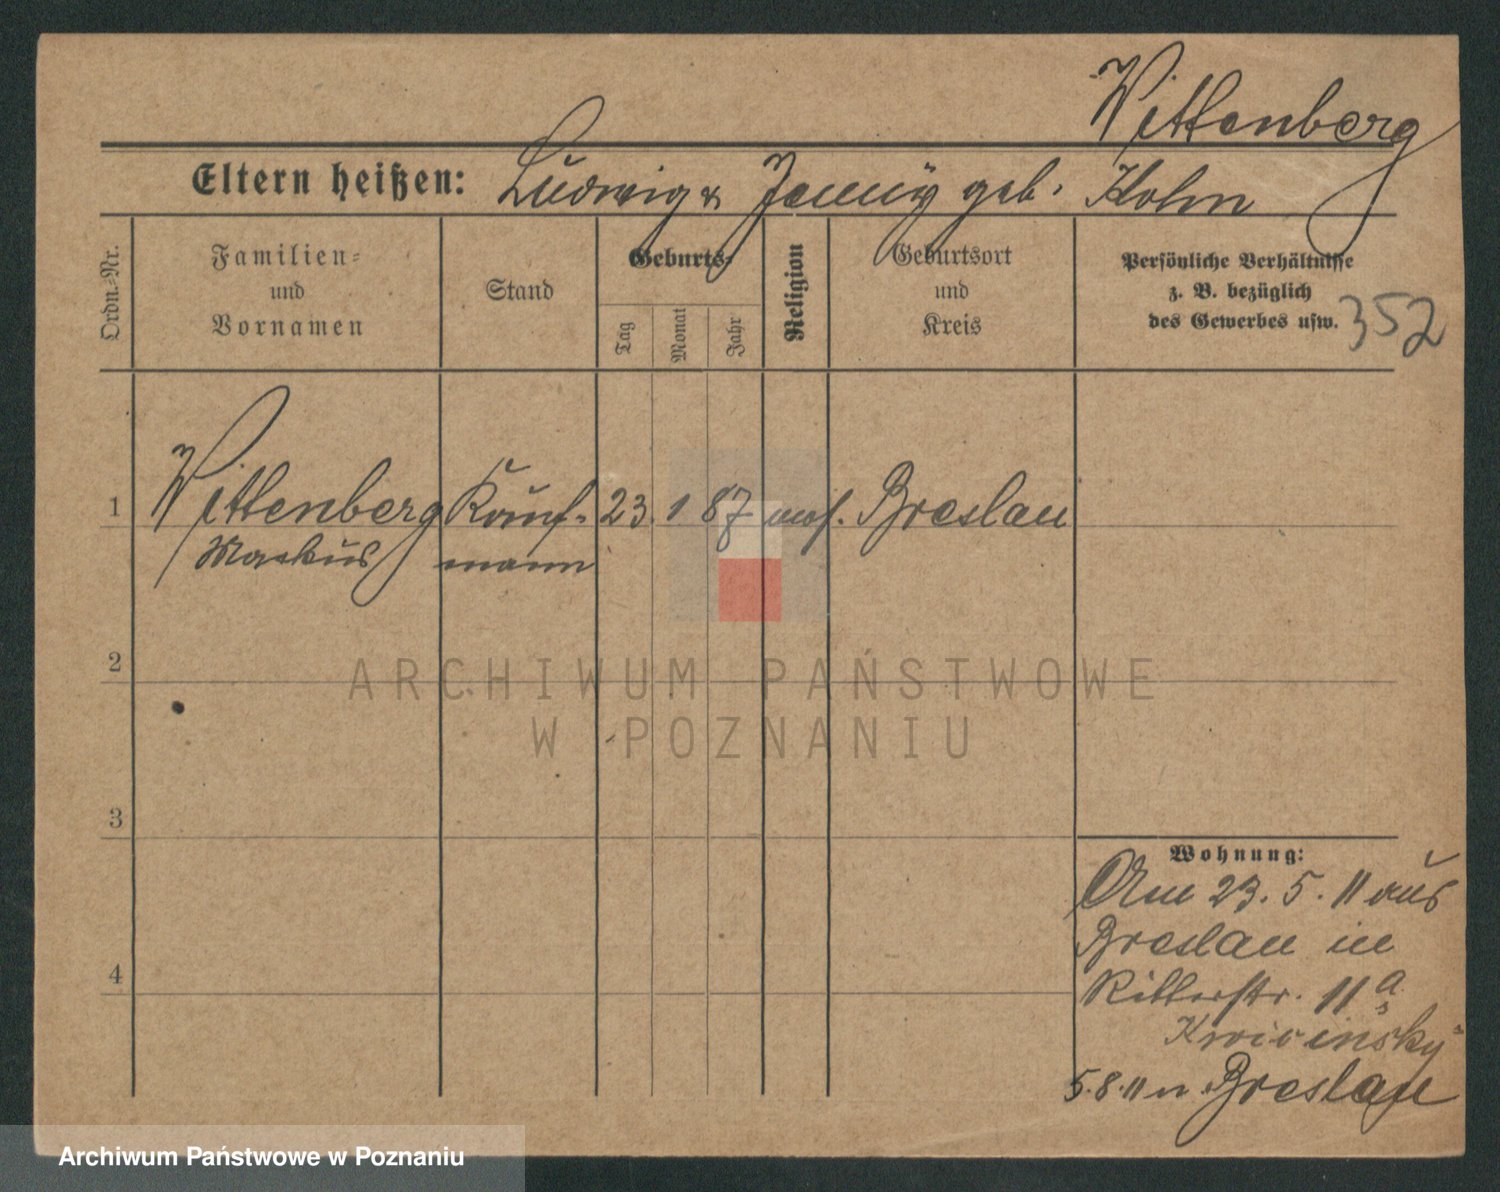 Wittenberg
Eltern heißen: Ludwig u Jenny geb.
Ordn.-Nr.
Familien-
und
Vornamen
Stand
Geburts-
Tag
Monat
Jahr
Religion
Geburtsort
und
Kreis
Persönliche Verhältnisse
z. B. bezüglich
des Gewerbes usw.
352
1 Wittenberg Kauf- 23. 1 87 mos. Breslau
Markus mann
2
3
4
Wohnung:
Am 23. 5. 11 aus
Breslau in
Ritterstr. 11a
5.8.11 n. Breslau
ARCHIWUM PAŃSTWOWE
W POZNANIU
Archiwum Państwowe w Poznaniu